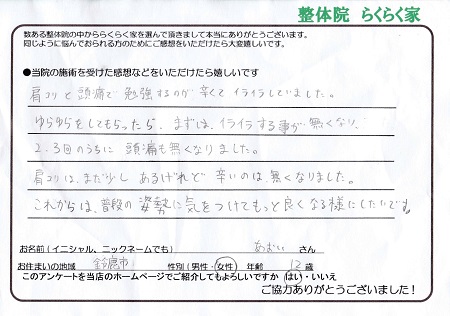 整体院 らくらく家
数ある整体院の中かららくらく家を選んで頂きまして本当にありがとうございます。
同じように悩んでおられる方のためにご感想をいただけたら大変嬉しいです。
●当院の施術を受けた感想などをいただけたら嬉しいです
肩コリと頭痛で勉強するのが辛くてイライラしていました。
ゆらゆらをしてもらったら、まずは、イライラする事が無くなり、
2、3回のうちに頭痛も無くなりました。
肩コリは、まだ少しあるけれど辛いのは、無くなりました。
これからは、普段の姿勢に気をつけてもっと良くなる様にしたいです。
お名前(イニシャル、ニックネームでも) あおい さん
お住まいの地域 鈴鹿市 性別(男性・女性) 年齢 12歳
このアンケートを当店のホームページでご紹介してもよろしいですか(はい・いいえ
ご協力ありがとうございました!